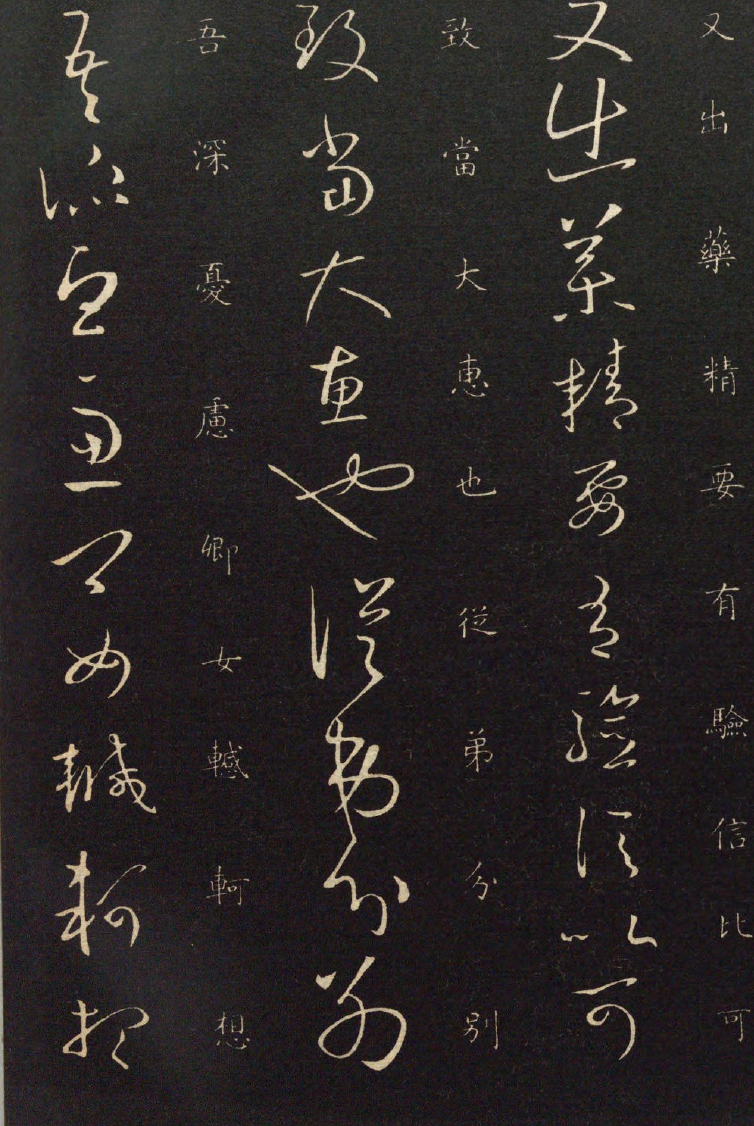 又出藥精要有驗信比可
又出藥精要有驗信比可
致當大惠也從弟分別
致當大惠也従弟分別
吾深憂慮卿女轗軻想
吾深憂慮卿女轗軻想